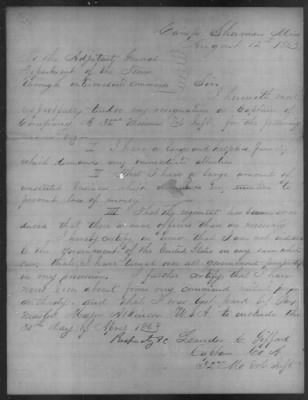 Camp Sherman Miss
August 12th 1863
To the Adjutant General
Department of the Tenn
through intermediate commands
Sir
I herewith most
respectfully tender my resignation as Captain of
Company A 32nd Missouri Vol Inft. for the following
reasons
I I have a large and helpless family
which demands my immediate attention
II That I have a large amount of
unsettled business which my attention to
prevent loss of money
III That the regiment has become so re-
duced that there is more officers than are necessary
I hereby certify on honor that I am not indebted
to the Government of the United States on any account what-
ever, that I have turned over all government property
in my possession, I further certify that I have
never been absent from my command without proper
authority, and that I was last paid by Pay-
master Major U.S.A. to include the
30th day of April 1863
Respecty &c Leander C. Gifford
Captain Co A
32nd Mo Vol Inft